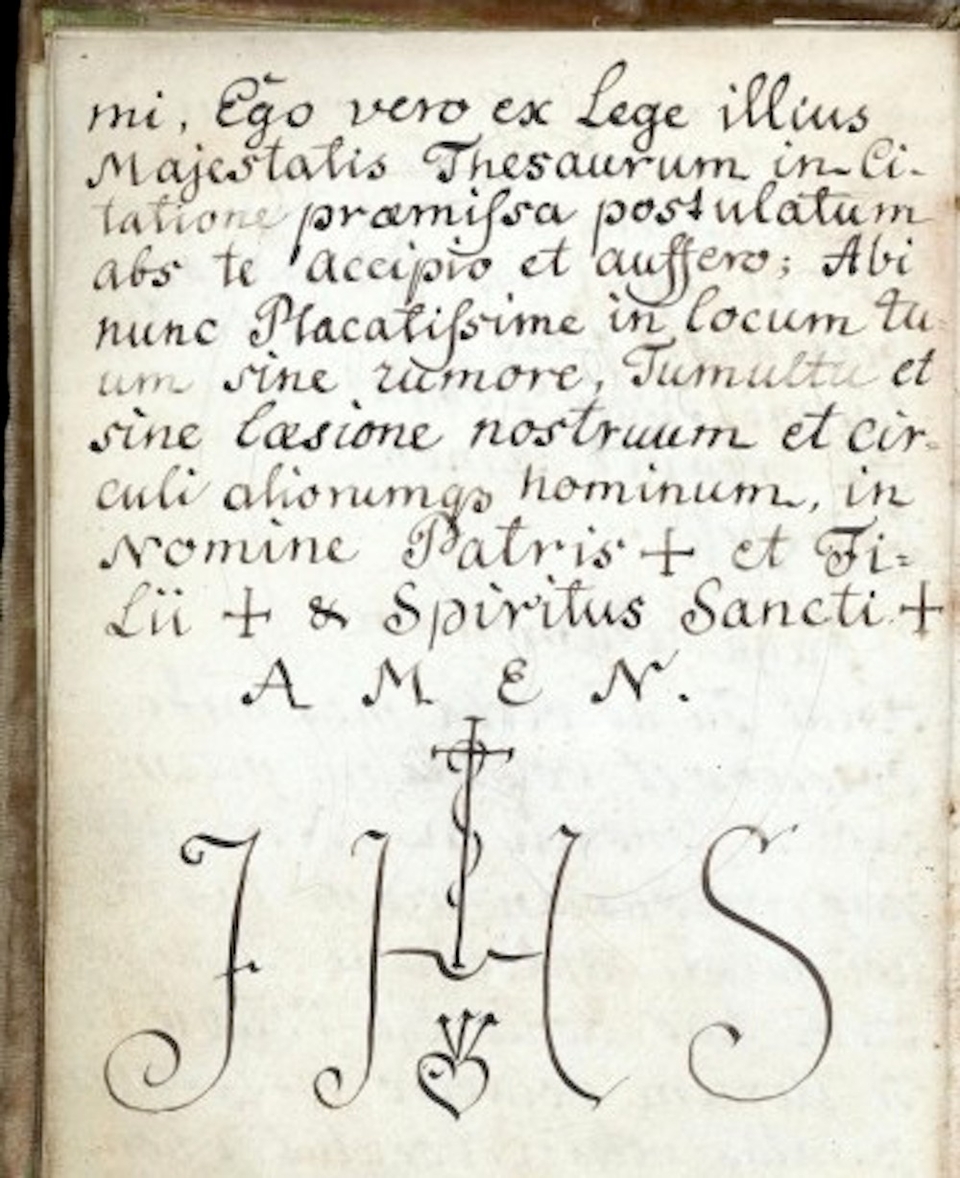 mi, Ego vero ex Lege illius
Majestatis Thesaurum in Ci-
tatione præmiſsa postulatum
abs te accipio et auffero; Abi
nunc Placatiſsime in locum tu-
um sine rumore, Tumultu et
sine læsione nostruum et cir-
culi aliorumqȝ hominum, in
Nomine Patris + et Fi=
Lii + & Spiritus Sancti +
A M E N.
J H S